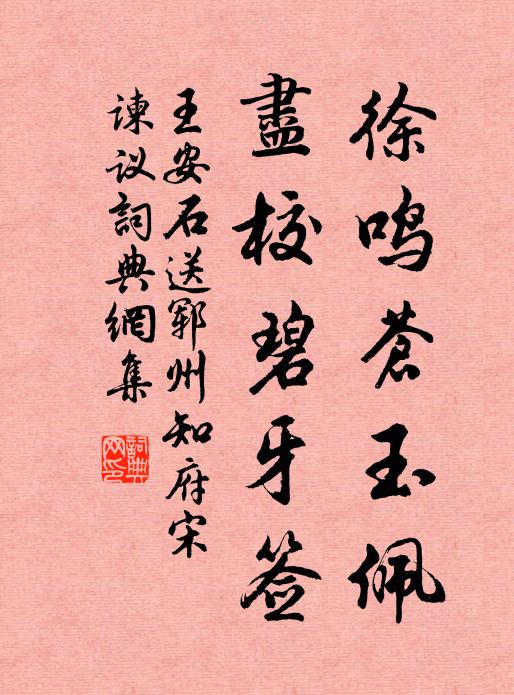 徐鸣苍玉佩
盡校碧牙签
王安石送郓州知府宋
谏议詞典網集
詞典网印